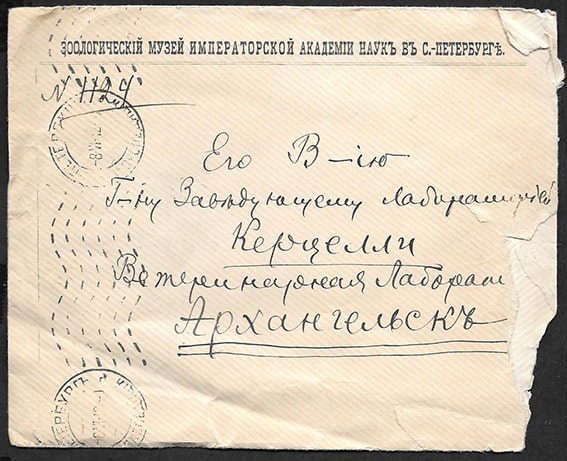 ЗООЛОГИЧЕСКІЙ МУЗЕЙ ИМПЕРАТОРСКОЙ АКАДЕМІИ НАУКЪ ВЪ С.-ПЕТЕРБУРГѢ.
N 1124
Его В–ію
Г-ну Завѣдующему Лабораторіей
Керцелли
Ветеринарная Лаборат
Архангельскъ